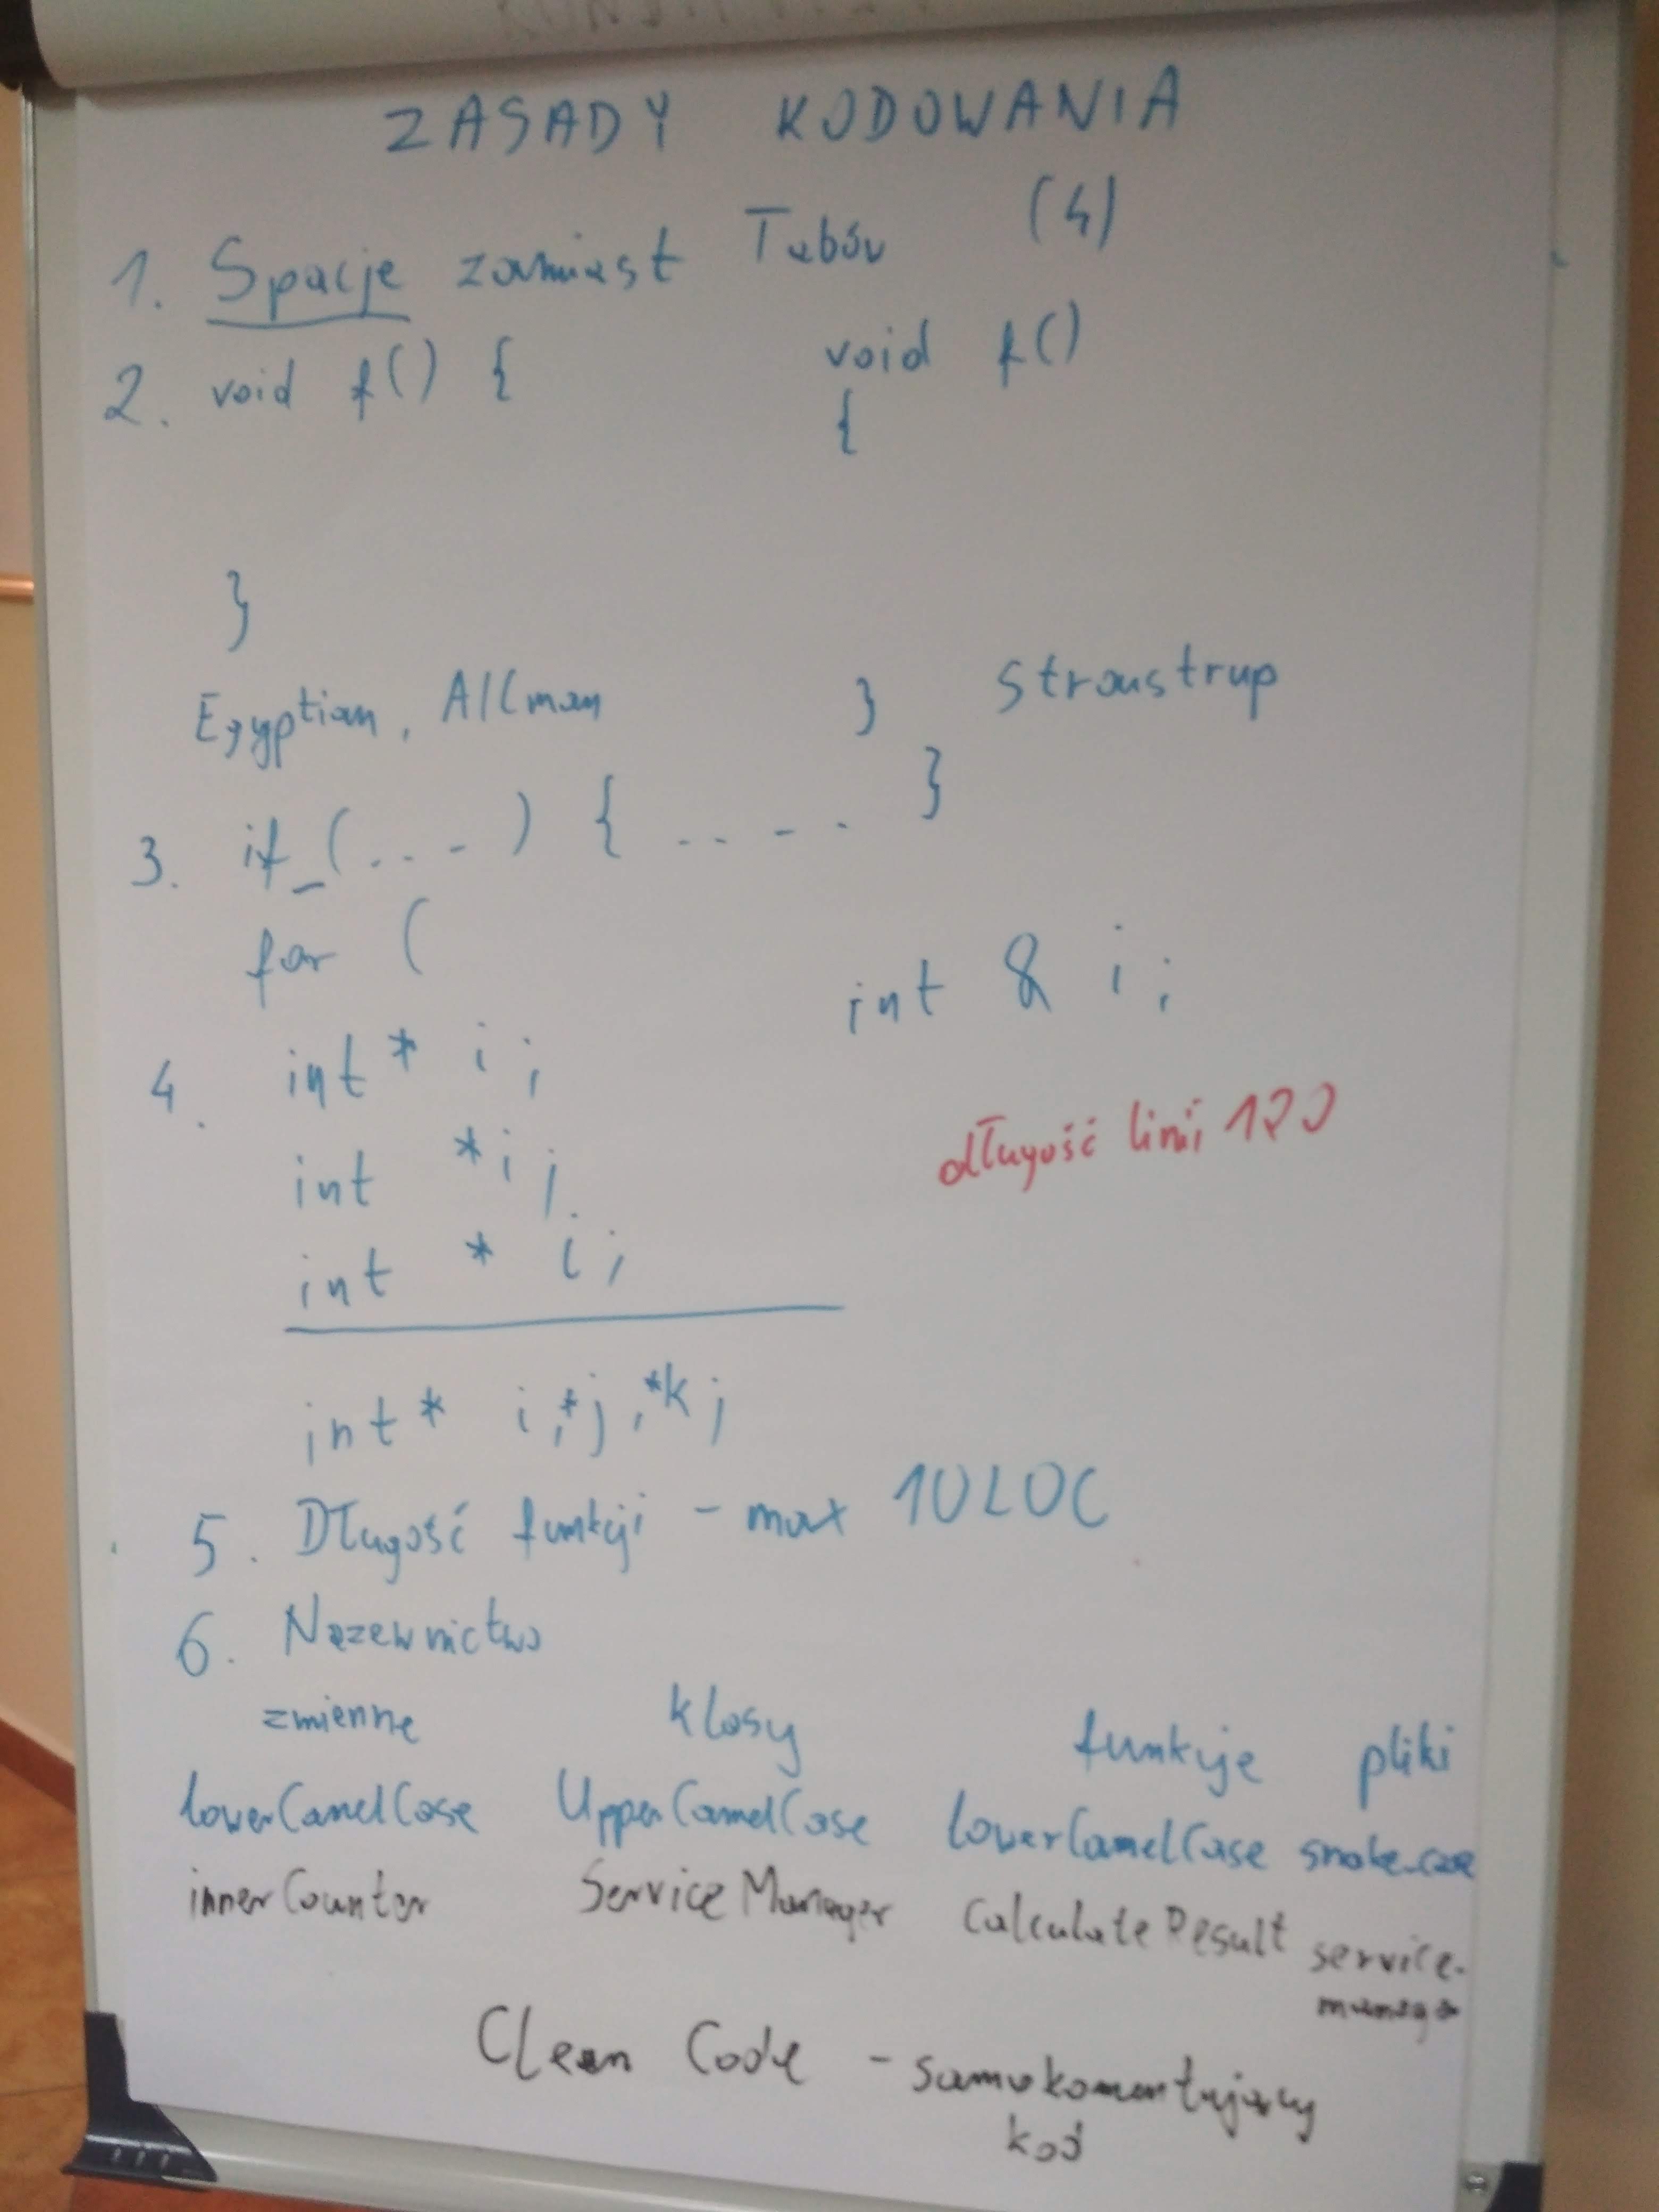 ZASADY KODOWANIA
1. Spacje zamiast Tabów (4)
2. void f() { void f()
{
}
Egyptian, Allman } Stroustrup
3. if_(...) { ..... }
for (
int & i;
4. int* i;
długość linii 120
int *i;
int * i;
int* i,*j,*k;
5. Długość funkcji - max 10LOC
6. Nazewnictwo
zmienne klasy funkcje pliki
lowerCamelCase UpperCamelCase lowerCamelCase snake_case
innerCounter ServiceManager calculateResult service-
Clean Code - samokomentujący
kod